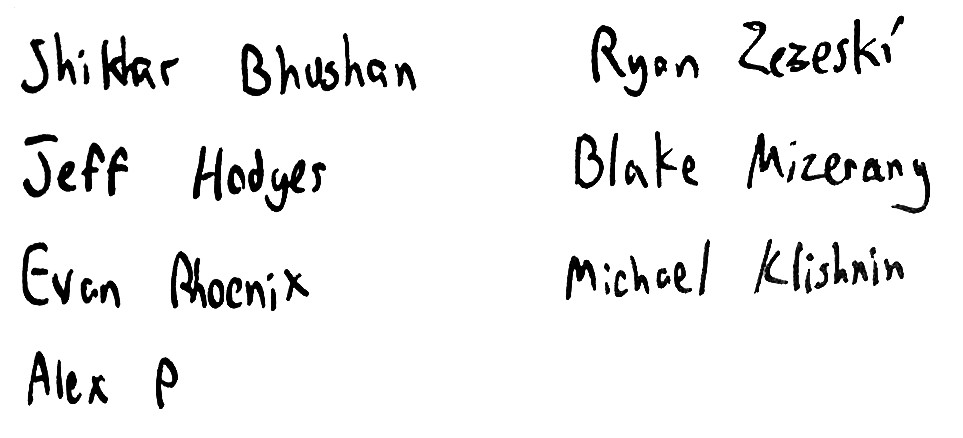 Shikhar Bhushan
Jeff Hodges
Evan Phoenix
Alex P
Ryan Zezeski
Blake Mizerany
Michael Klishnin